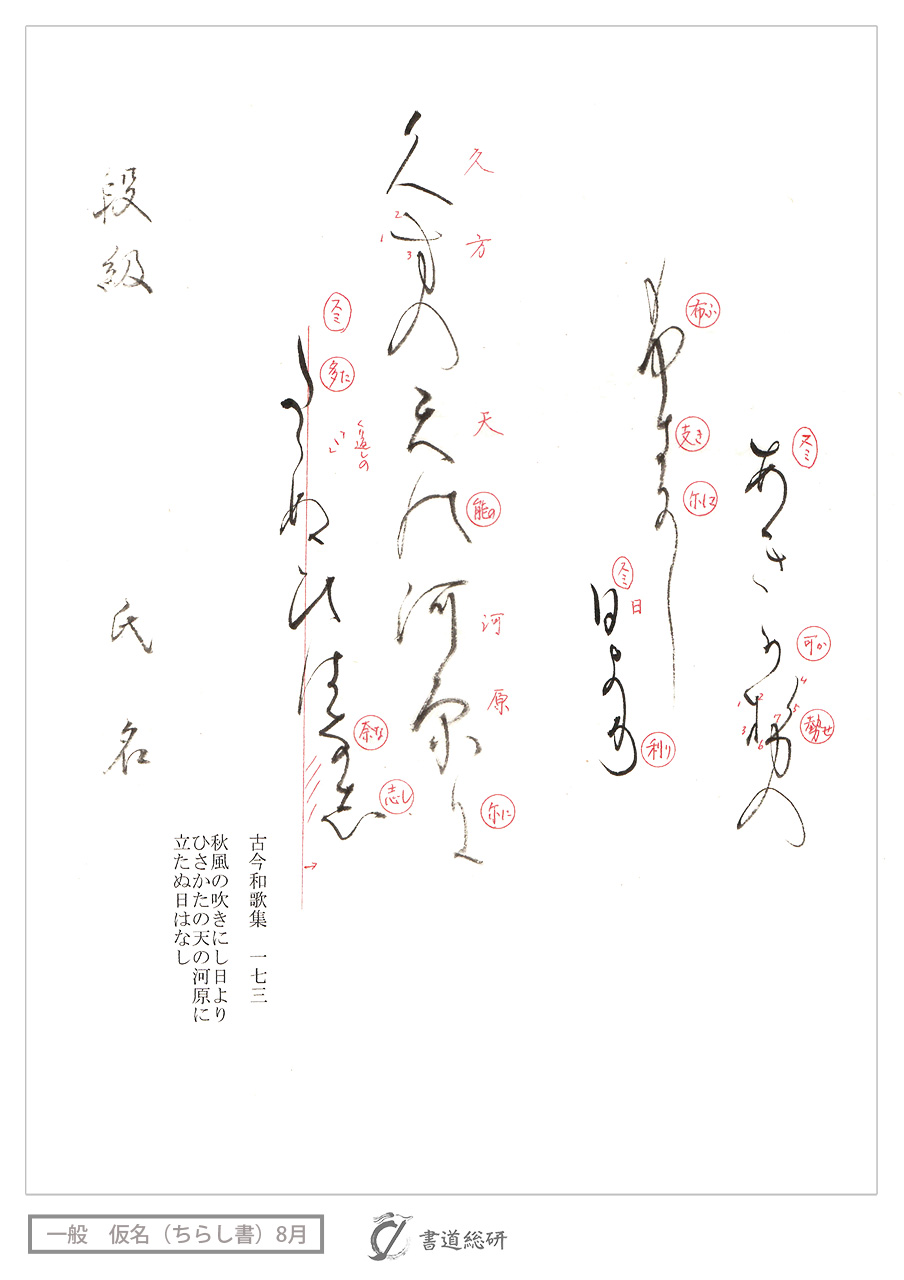 あき可勢の
可か
勢せ
布支尓し
布ふ
支き
尓に
日よ利
日
利り
久方の天能河原尓
久
方
天
能の
河
原
尓に
多ゝぬ比は奈志
多た
くり返しの
「ゝ」
奈な
志し
古今和歌集　一七三
秋風の吹きにし日より
ひさかたの天の河原に
立たぬ日はなし
段級　氏名
一般　仮名（ちらし書）8月
書道総研